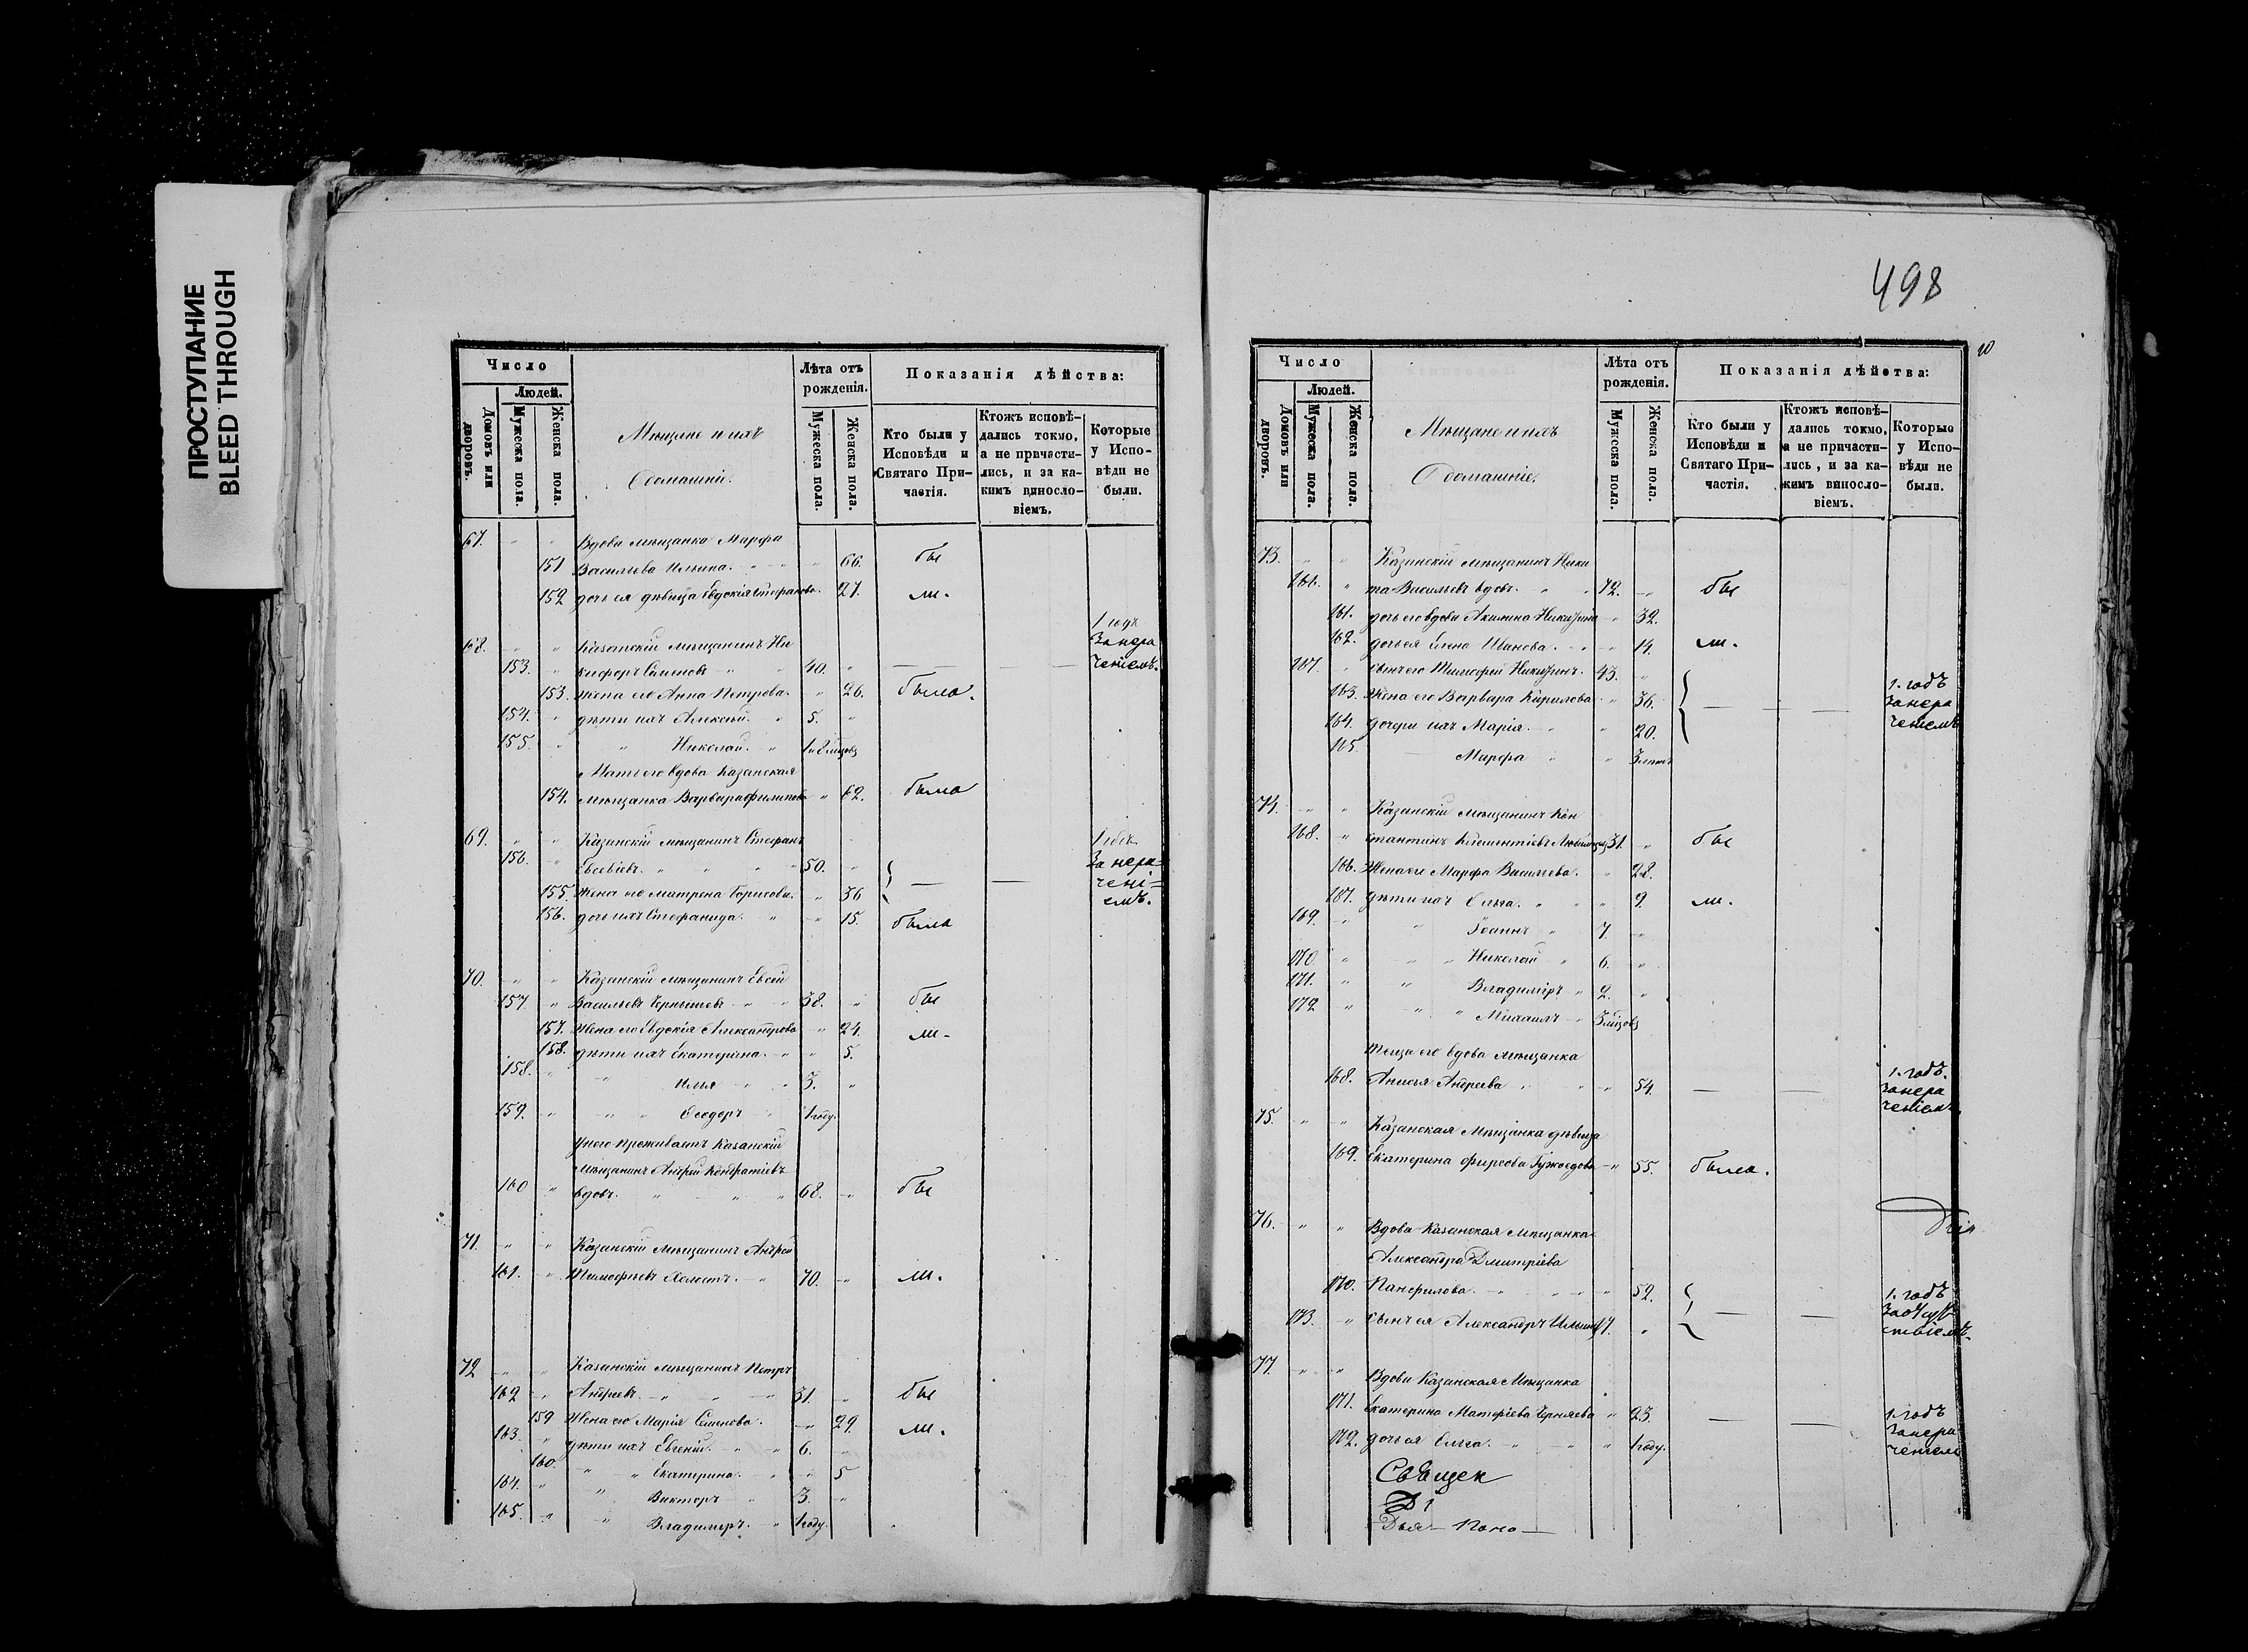 ПРОСТУПАНИЕ
BLEED THROUGH
498
10
Число
Людей.
Домовъ или дворовъ.
Мужеска пола.
Женска пола.
Мѣщане и ихъ
домашніе.
Лѣта отъ рожденія.
Мужеска пола.
Женска пола.
Показанія дѣйства:
Кто были у Исповѣди и Святаго Причастія.
Ктожъ исповѣдались токмо, а не причастились, и за какимъ винословіемъ.
Которые у Исповѣди не были.
67. Вдова мѣщанка Марфа
151 Васильева Ильина. 66. бы
152 дочь ея дѣвица Евдокія Стефанова. 27. ли.
1 годъ
68. Казанскій мѣщанинъ Ни За нера
153. кифоръ Семеновъ 40. ченіемъ.
153. Жена его Анна Петрова. 26. была.
154. дѣти ихъ Алексѣй. 5.
155. Николай. 1 и 8 мѣсяцовъ
Мать его вдова Казанская
154. мѣщанка Варвара Филипова 62. была
69. Казанскій мѣщанинъ Стефанъ 1 годъ
156. Евсевіевъ. 50. За нера
155. Жена его Матрена Борисова. 36 чені=
156. дочь ихъ Стефанида. 15. была емъ.
70. Казанскій мѣщанинъ Евсей
157. Васильевъ Чернышевъ 38. бы
157. Жена его Евдокія Александрова 24. ли.
158. дѣти ихъ Екатерина. 5.
158. Илья 3.
159. Ѳеодоръ 1 году.
У него проживаетъ Казанскій
мѣщанинъ Андрей Кондратіевъ
160 вдовъ. 68. бы
71. Казанскій мѣщанинъ Андрей
161. Тимофѣевъ 70. ли.
72 Казанскій мѣщанинъ Петръ
162 Андреевъ. 31. бы
159 Жена его Марія Семенова. 29. ли.
163. дѣти ихъ Евгеній. 6.
160. Екатерина. 5
164. Викторъ 3.
165. Владиміръ. 1 году.
Число
Людей.
Домовъ или дворовъ.
Мужеска пола.
Женска пола.
Мѣщане и ихъ
домашніе.
Лѣта отъ рожденія.
Мужеска пола.
Женска пола.
Показанія дѣйства:
Кто были у Исповѣди и Святаго Причастія.
Ктожъ исповѣдались токмо, а не причастились, и за какимъ винословіемъ.
Которые у Исповѣди не были.
73. Казанскій мѣщанинъ Ники
166. та Васильевъ вдовъ. 72. бы
161. дочь его вдова Акилина Никитина 32.
162. дочь ея Елена Иванова. 14. ли.
167. сынъ его Тимофей Никитинъ. 43.
163. Жена его Варвара Кирилова 36. 1. годъ
164. дочери ихъ Марія. 20. За нера
165. Марфа 3 лѣтъ ченіемъ
74. Казанскій мѣщанинъ Кон
168. стантинъ Климентіевъ 31. бы
166. Жена его Марфа Васильева. 28.
167. дѣти ихъ Ольга. 9. ли.
169. Іоаннъ 7.
170. Николай 6.
171. Владиміръ 2.
172 Михаилъ 3 мѣсяцовъ
теща его вдова мѣщанка
168. Анисья Андреева 54. 1. годъ. За нера ченіемъ.
75. Казанская мѣщанка дѣвица
169. Екатерина Фирсова 55. была.
76. Вдова Казанская мѣщанка
Александра Дмитріева
170. Панфилова. 52. 1. годъ
173. сынъ ея Александръ Ильинъ 17. За отсутствіемъ.
77. Вдова Казанская мѣщанка
171. Екатерина Матфіева Черняева 23. 1. годъ За нера
172. дочь ея Ольга. 1 году. ченіемъ
Священ